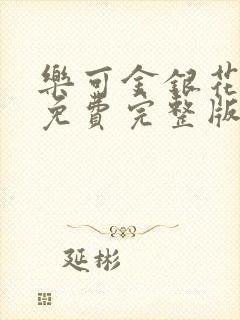 樂可金銀花
免費完整版
延彬